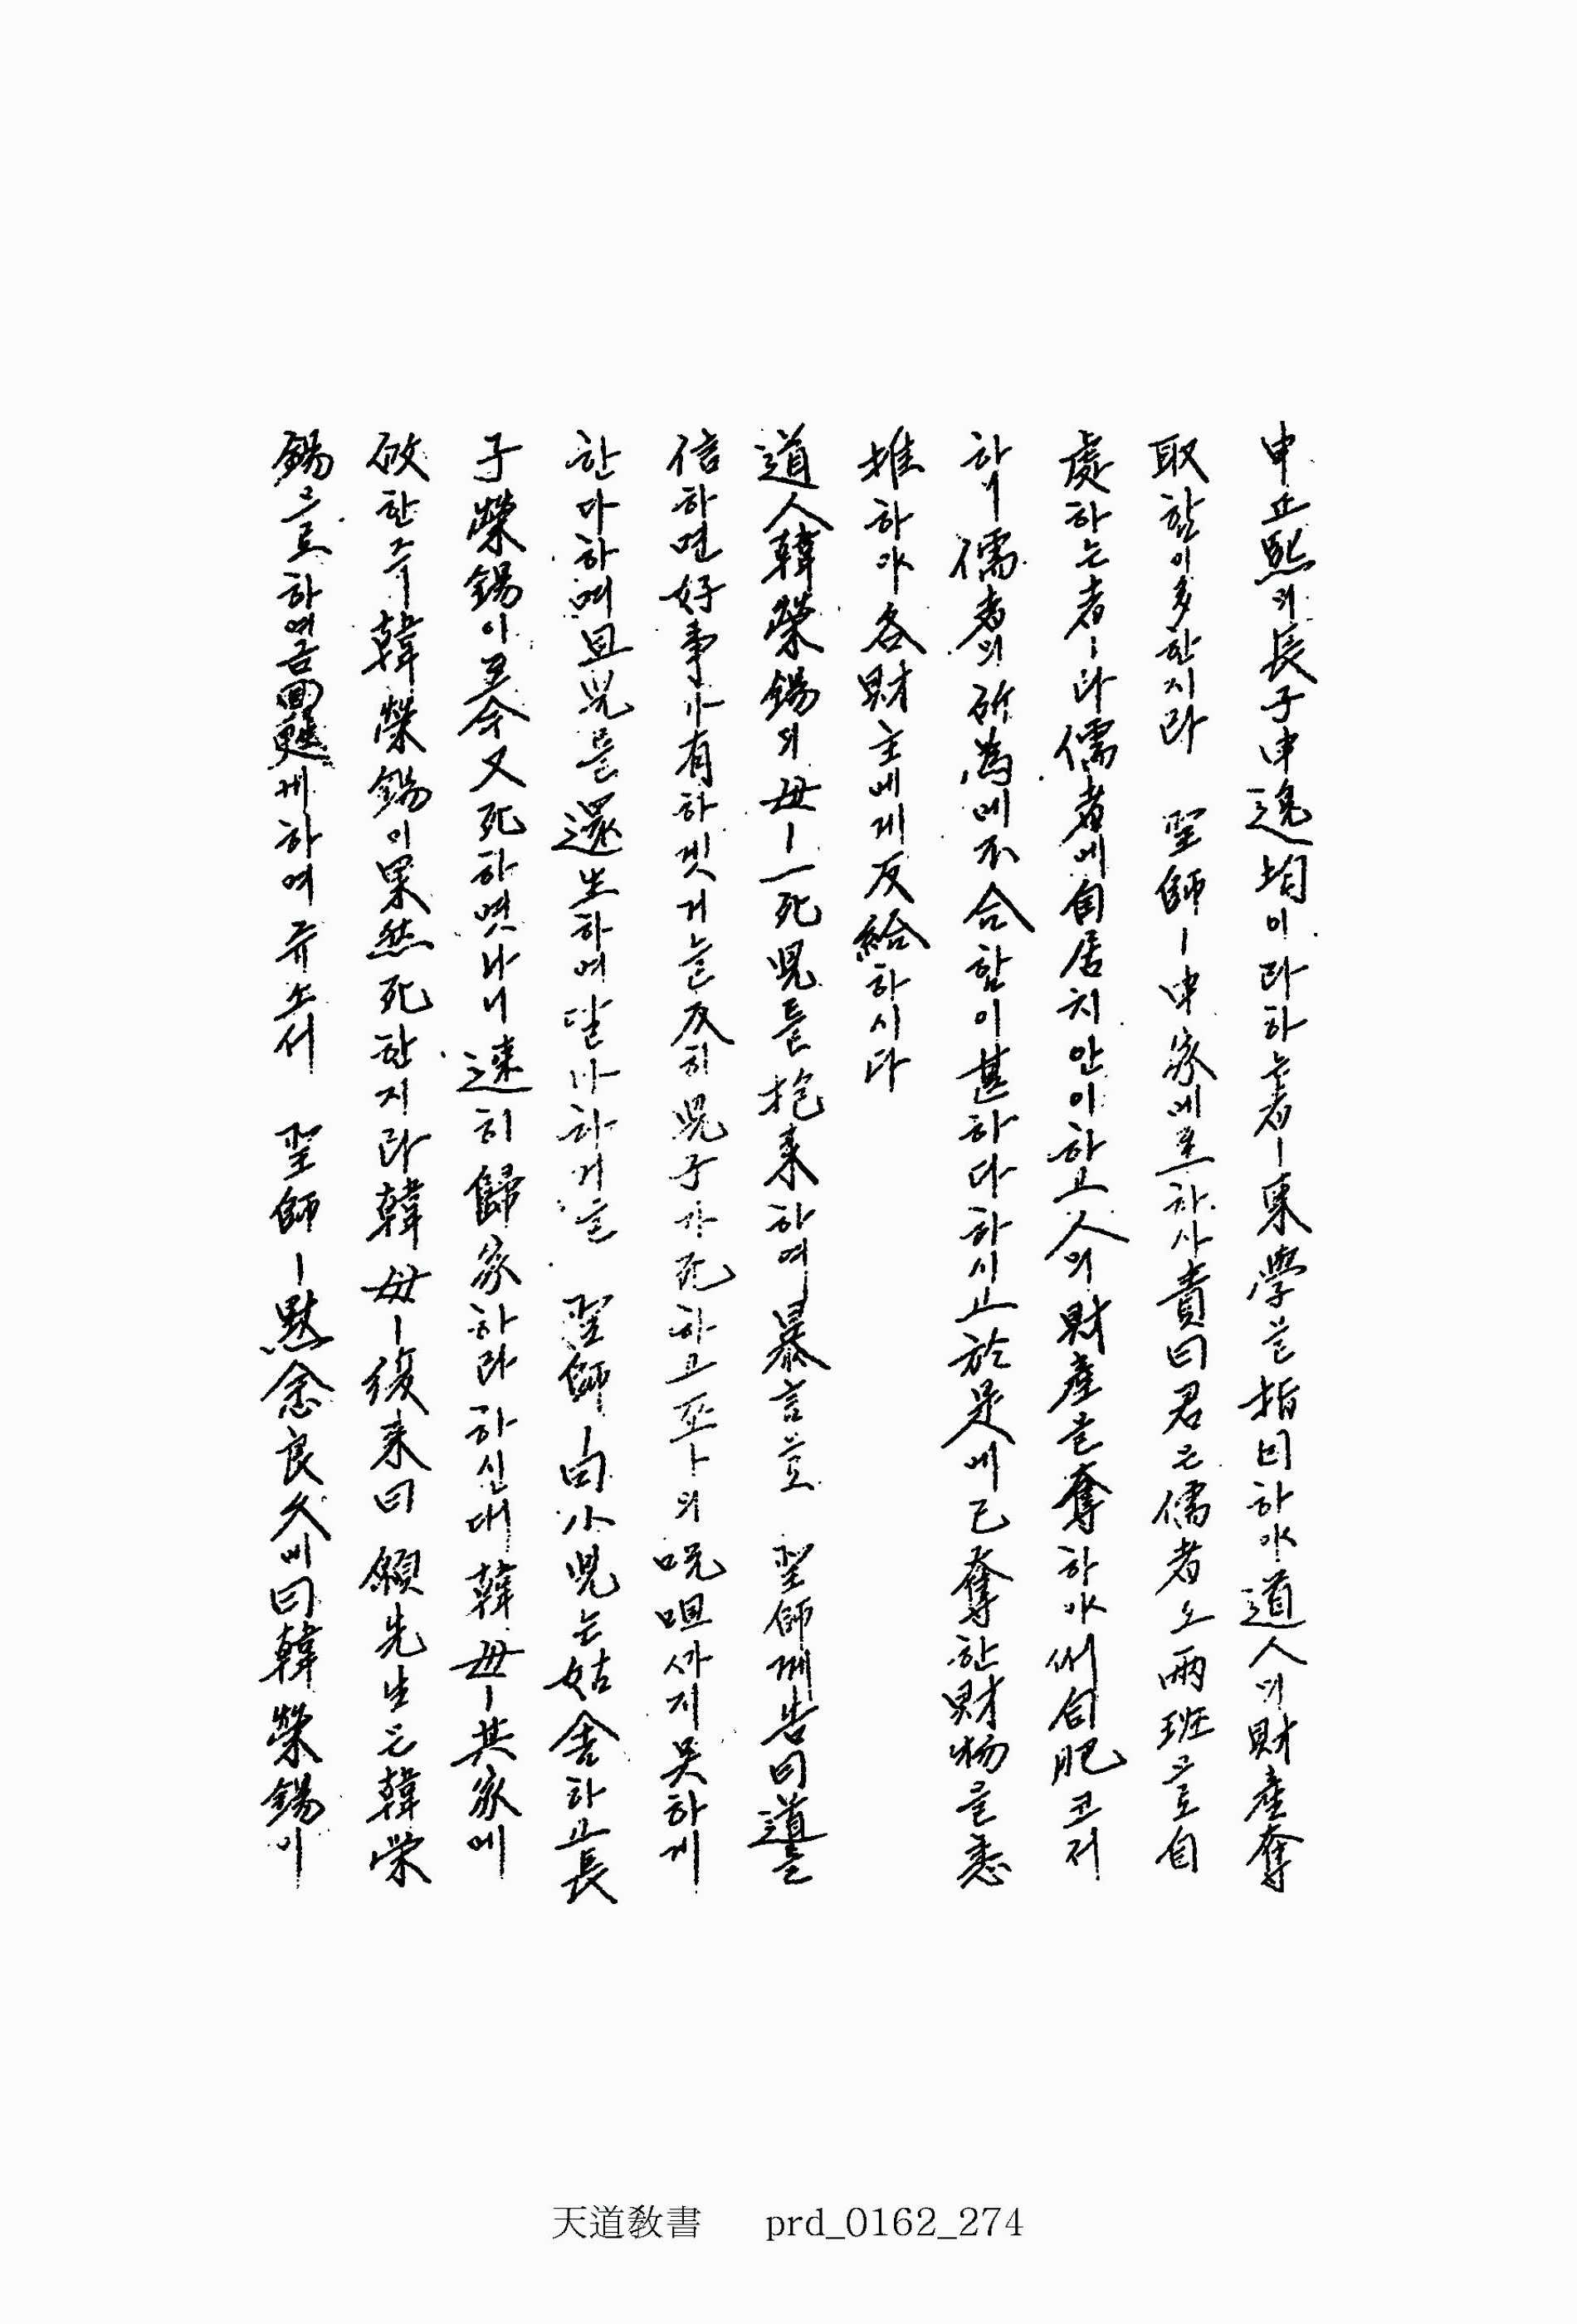 申正熙의長子申逸均이라하는者ㅣ東學을指目하야道人의財產奪
取함이多한지라 聖師ㅣ申家에至하사責曰君은儒者요兩班으로自
處하는者ㅣ라儒者에自居치안이하고人의財產을奪하야써自肥코저
하니儒者의所爲에不合함이甚하다하시고於是에已奪한財物을悉
推하야各財主에게反給하시다
道人韓榮錫의母ㅣ一死兒를抱來하여暴言으로 聖師께告曰道를
信하면好事가有하겟거늘反히兒子가死하고 의呪咀까지 하게
한다하며且兒를還生하여달나하거늘 聖師ㅣ曰小兒는姑舍하고長
子榮錫이至今又死하엿나니速히歸家하라하신대韓母ㅣ其家에
한즉韓榮錫이果然死한지라韓母ㅣ後來曰 願先生은韓榮
錫으로하여금回甦케하여쥬소서 聖師ㅣ默念良久에曰韓榮錫이
天道敎書 prd_0162_274